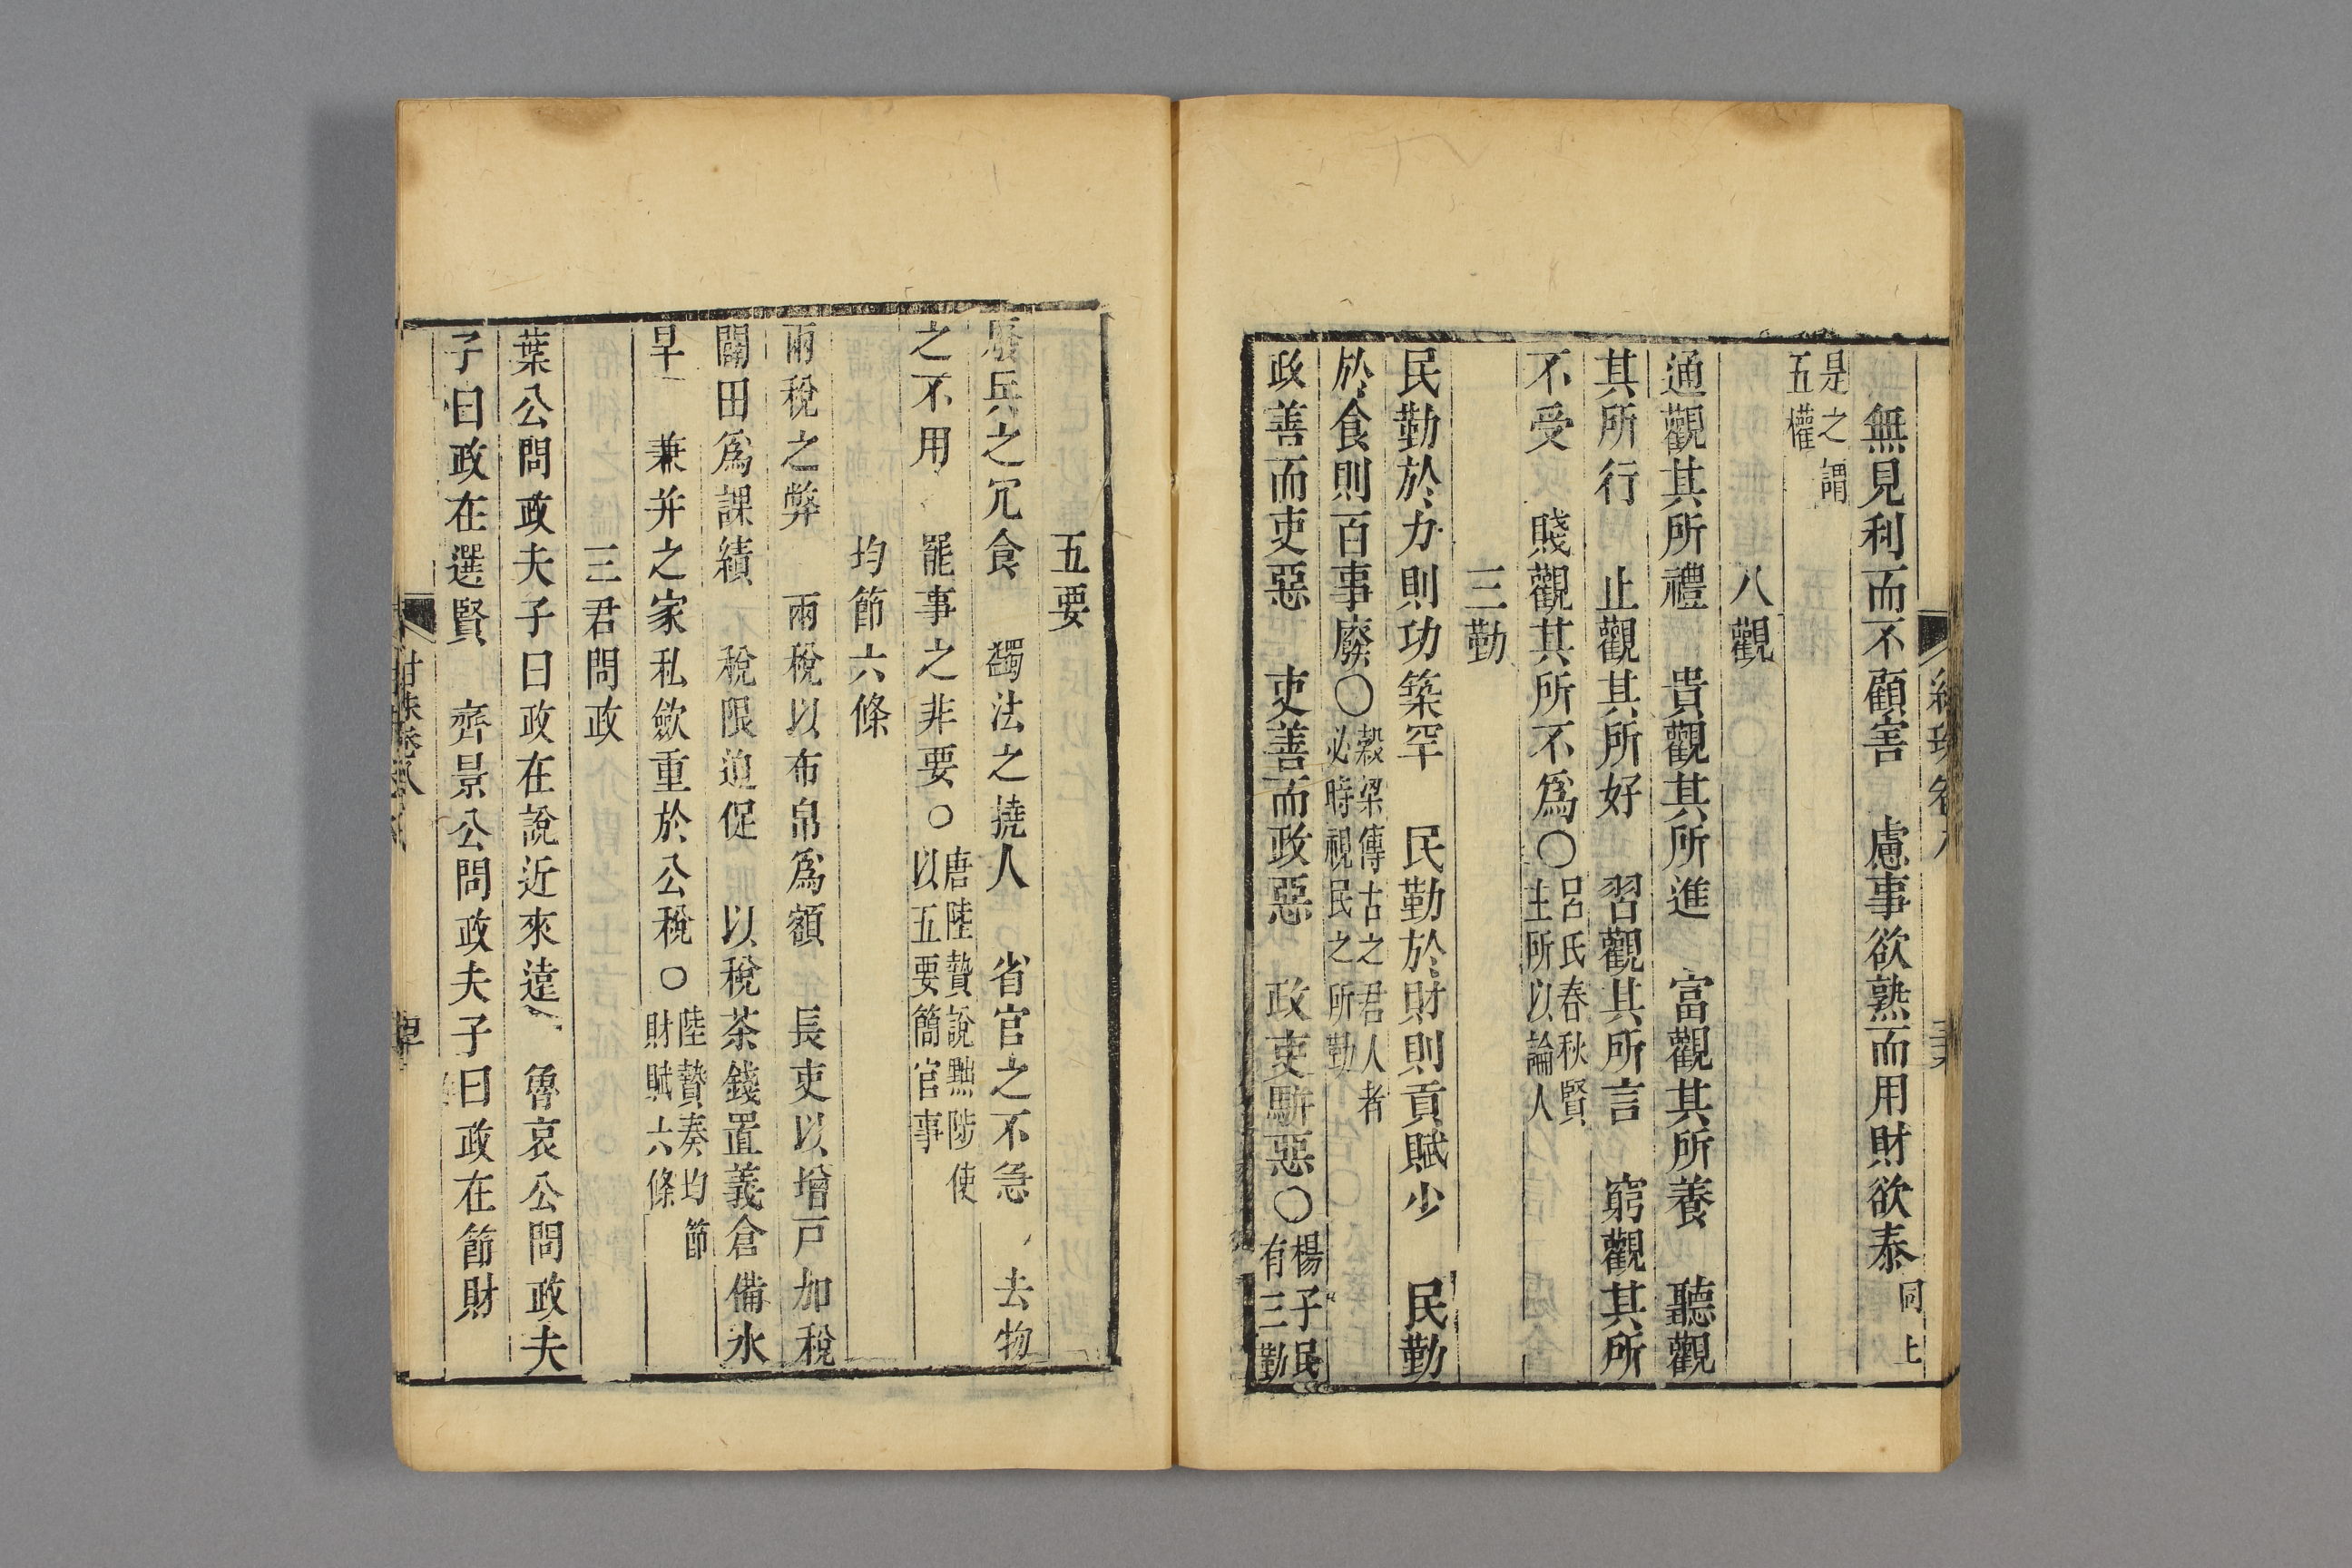 無見利而不顧害　慮事欲熟而用財欲泰同上
是之謂五權
八觀
通觀其所禮　貴觀其所進　富觀其所養　聽觀
其所行　止觀其所好　習觀其所言　窮觀其所
不受　賤觀其所不爲〇呂氏春秋賢主所以論人
三勤
民勤於力則功築罕　民勤於財則貢賦少　民勤
於食則百事廢〇穀梁傳古之君人者必時視民之所勤
政善而吏惡　吏善而政惡　政吏駢惡〇楊子民有三勤
五要
廢兵之冗食　蠲法之撓人　省官之不急　去物
之不用　罷事之非要〇唐陸贄說黜陟使以五要簡官事
均節六條
兩稅之弊　兩稅以布帛爲額　長吏以增戸加稅
闢田爲課績　稅限迫促　以稅茶錢置義倉備水
旱　兼并之家私歛重於公稅〇陸贄奏均節財賦六條
三君問政
葉公問政夫子曰政在說近來遠　魯哀公問政夫
子曰政在選賢　齊景公問政夫子曰政在節財